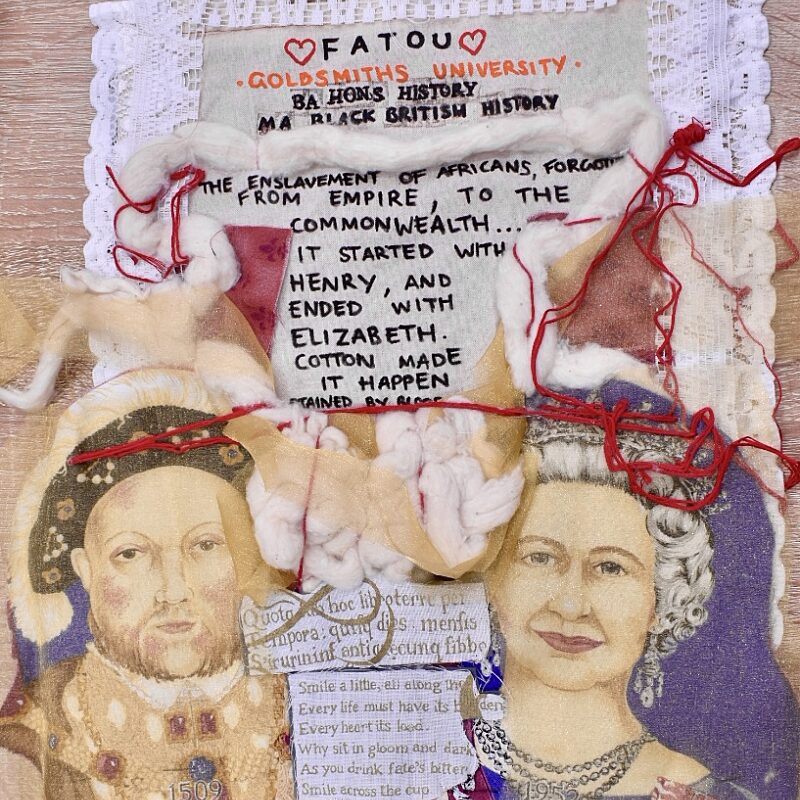 FATOU
GOLDSMITHS UNIVERSITY
BA HONS HISTORY
MA BLACK BRITISH HISTORY
THE ENSLAVEMENT OF AFRICANS,
FROM EMPIRE, TO THE
COMMONWEALTH...
IT STARTED WITH
HENRY, AND
ENDED WITH
ELIZABETH.
COTTON MADE
IT HAPPEN
STAINED BY BLOOD
hoc
dies mensis
Smile a little, all along the
Every life must have its
Every heart its load.
Why sit in gloom and dark
As you drink fate's bitter
Smile across the cup
1509